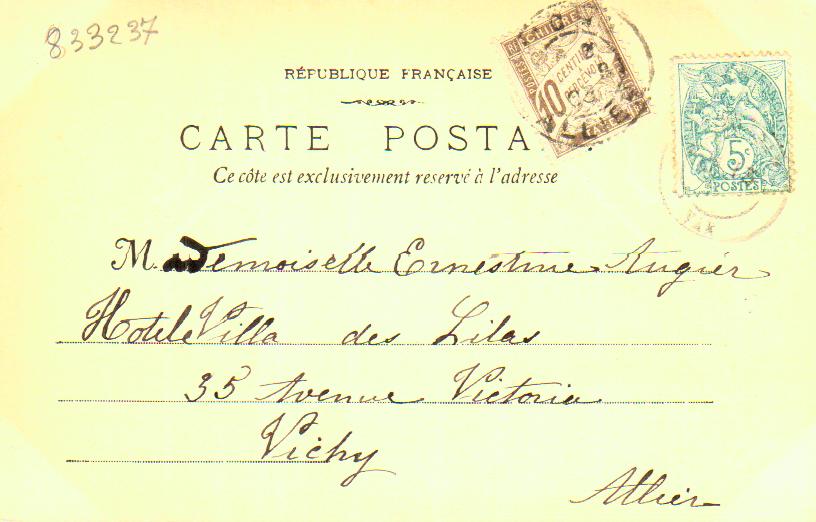 833237
RÉPUBLIQUE FRANÇAISE
CARTE POSTA
Ce côte est exclusivement reservé à l'adresse
10 CENTIMES
5c
POSTES
Mademoiselle Ernestine Augier
Hotel Villa des Lilas
35 Avenue Victoria
Vichy
Allier